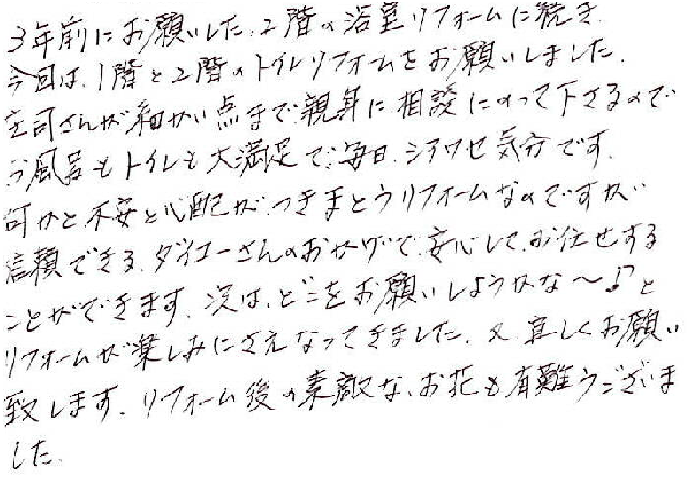 3年前にお願いした、2階の浴室リフォームに続き、
今回は、1階と2階のトイレリフォームをお願いしました。
庄司さんが細かい点まで親身に相談にのって下さるので
お風呂もトイレも大満足で、毎日、シアワセ気分です。
何かと不安と心配が、つきまとうリフォームなのですが、
信頼できる、ダイコーさんのおかげで、安心して、お任せする
ことができます。次は、どこをお願いしようかな〜♪と
リフォームが楽しみにさえなってきました。又、宜しくお願い
致します。リフォーム後の素敵な、お花も有難うございま
した。